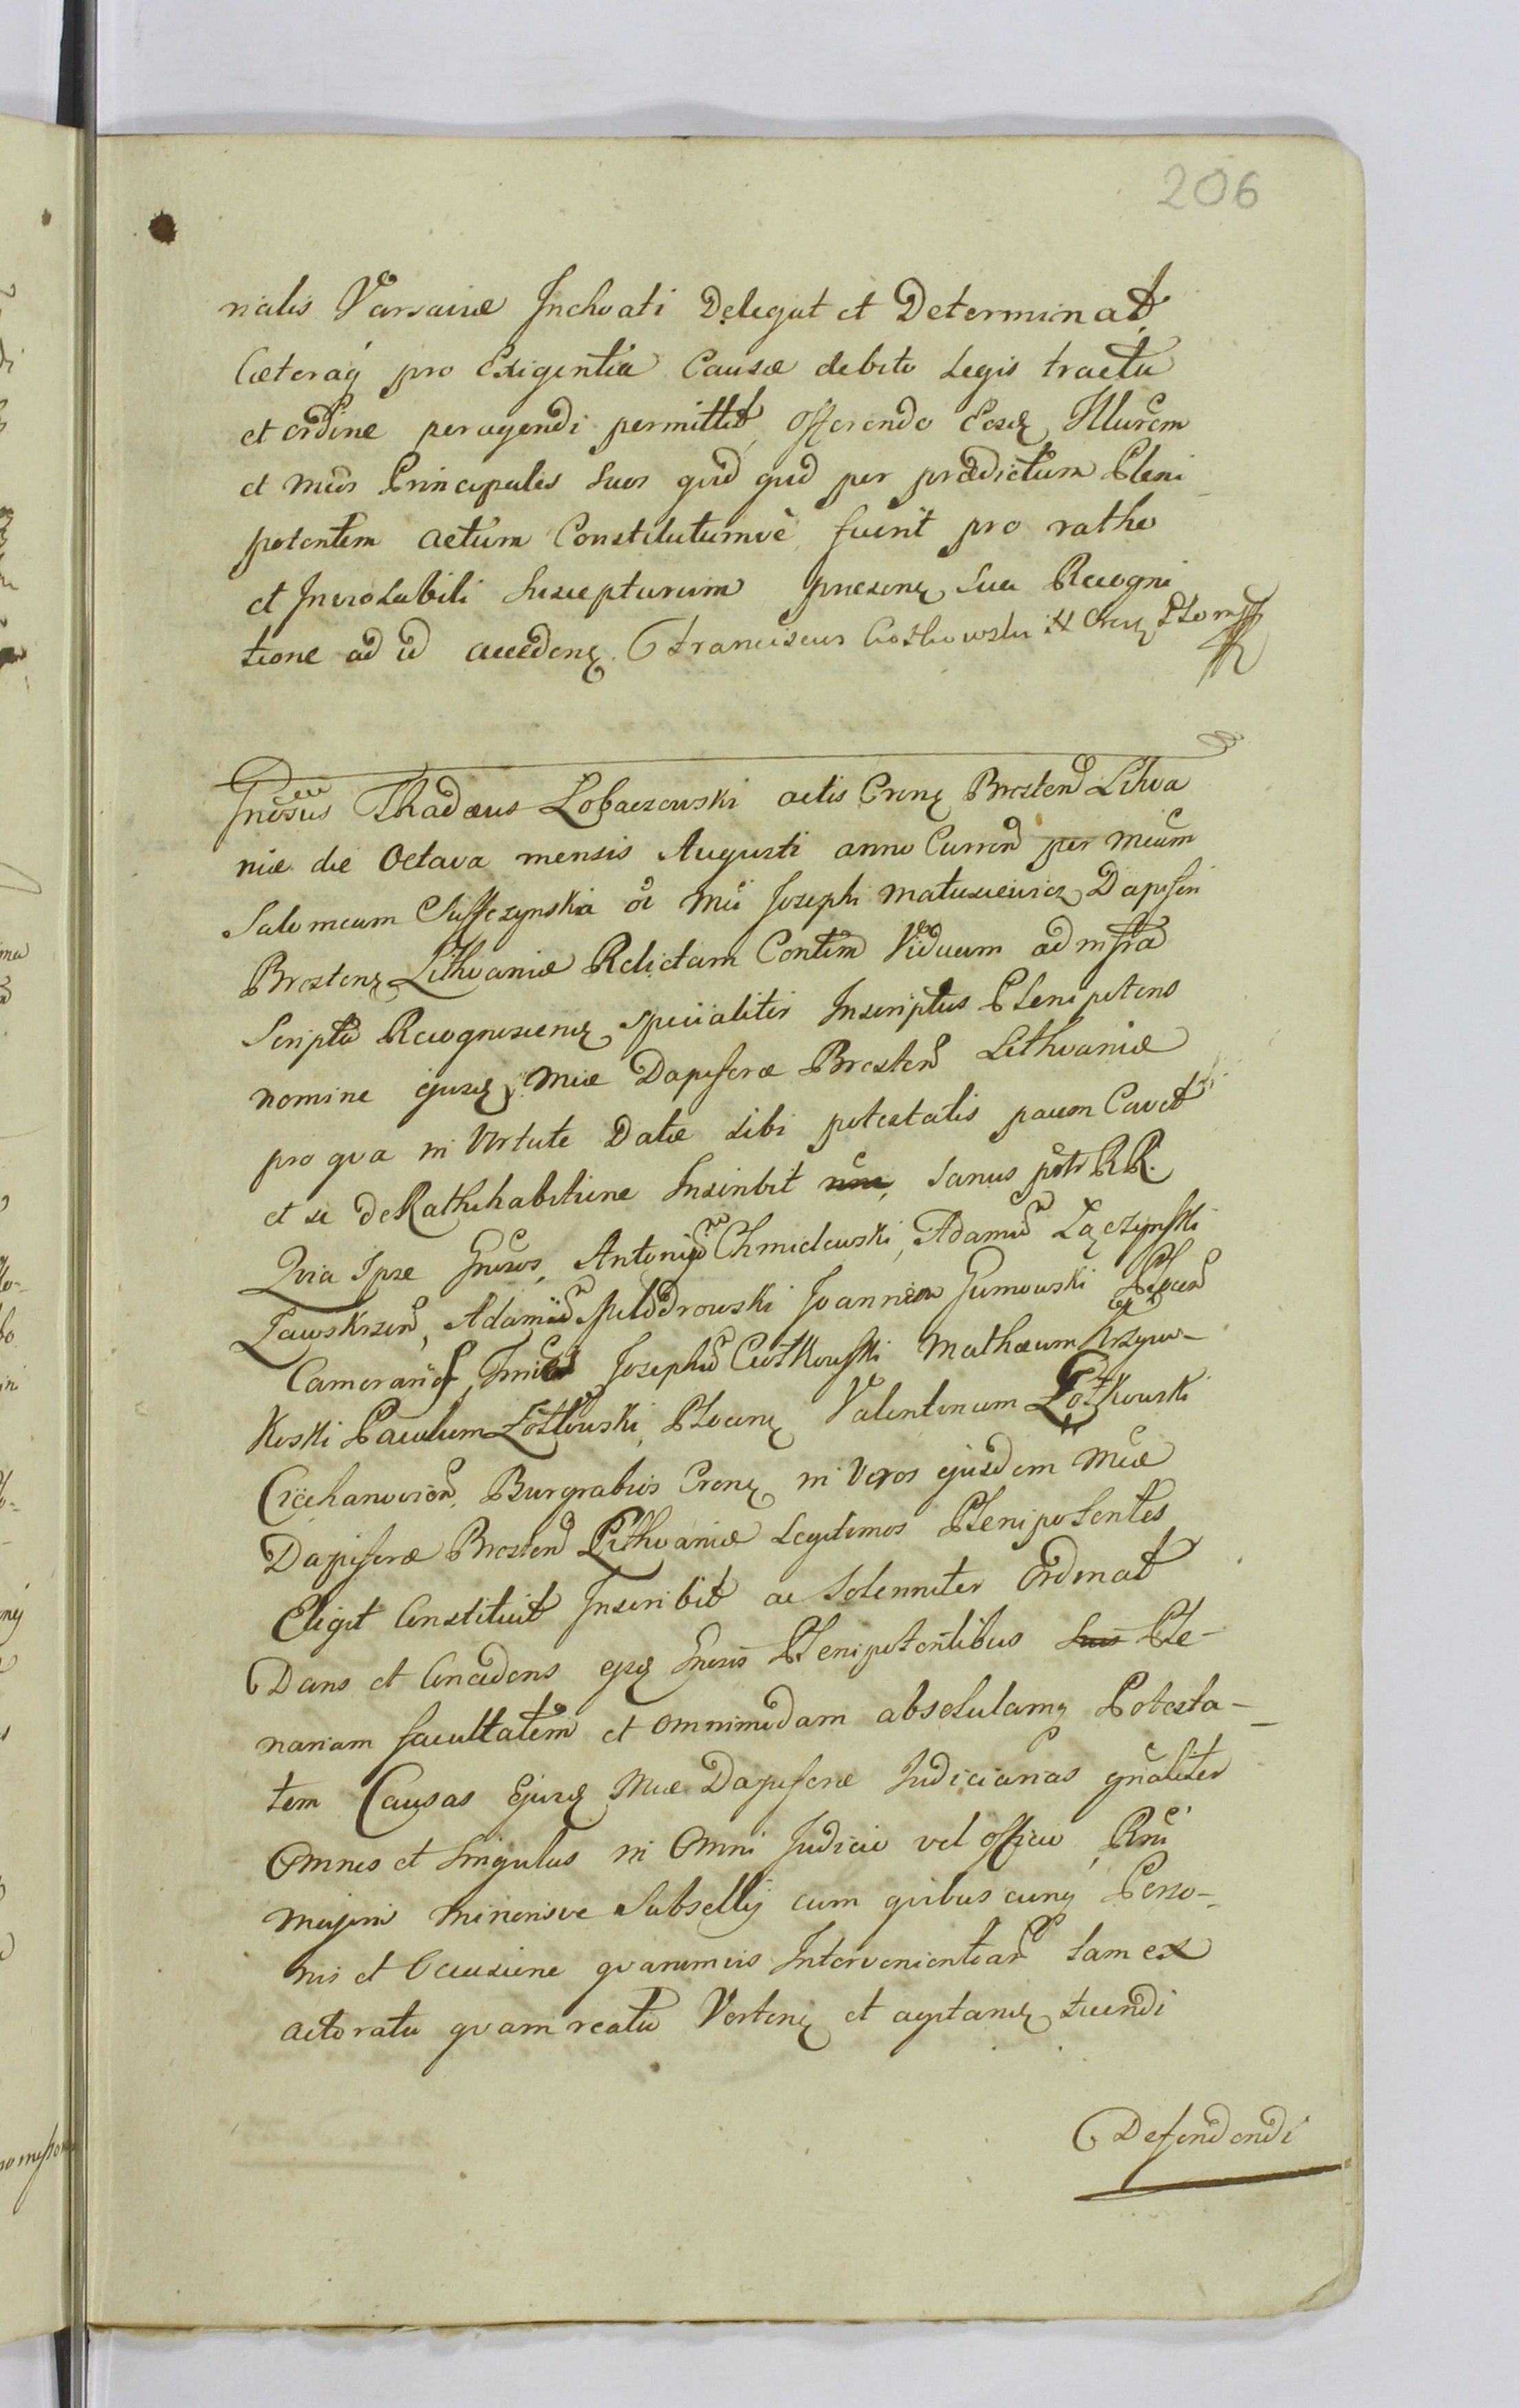 206
nalis Varsaviæ Inchoati Delegat et Determinat
Cæteraq pro Exigentia Causæ debito Legis tractu
et ordine peragendi permittit, Offerendo Eosd Illurem
et Mcos Principales suos quid quid per prædictum Pleni-
potentem actum Constitutumve fuerit pro ratho
et Inviolabili suscepturum præsenq sua Recogni
tione ad id accedenq. Franciscus
Gnosus Thadæus Lobaczewski actis Crenq Bresten Lithva
niæ die Octava mensis Augusti anno Curren per Mcam
Salomeam Suffczynska oi Mci Josephi Matusiewicz Dapiferi
Brestenq Lithvaniæ Relictam Contem Viduam ad infra
Scripta Recognoscenq specialiter Inscriptus Plenipotens
nomine ejusq Mcæ Dapiferæ Bresten Lithvaniæ
pro qva in Virtute Datæ sibi potestatis pacem Cavet
et se de Rathihabitione Inscribit sanus pttr RR.
Qvia Ipse Gnosos, Antoniu Chmielewski, Adamu Łączynski
Zawskrzen, Adamu Modrowski Joannem Gumowski Plocen
Camerarios, Josephu Ciotkowski Mathæum Krzyw-
koski Paculum Zotłowski, Plocenq Valentinum Łotkowski
Ciechanovien, Burgrabios Crenq in Veros ejusdem Mcæ
Dapiferæ Bresten Lithvaniæ Legitimos Plenipotentes
Eligit Constituit Inscribit ac Solenniter Ordinat
Dans et Concedens ejsq Gnosis Plenipotentibus suis Ple-
nariam facultatem et omnimodam absolutamq Potesta-
tem Causas Ejusq Mcæ Dapiferæ Judiciarias gnaliter
Omnes et singulas in Omni Judicio vel officio, Rni
majoris minorisve Subsellij cum qvibus cunq Perso-
nis et Occasione qvarumvis Intervenientiar tam ex
actoratu qvam reatu Vertenq et agitanq tuendi
Defendendi